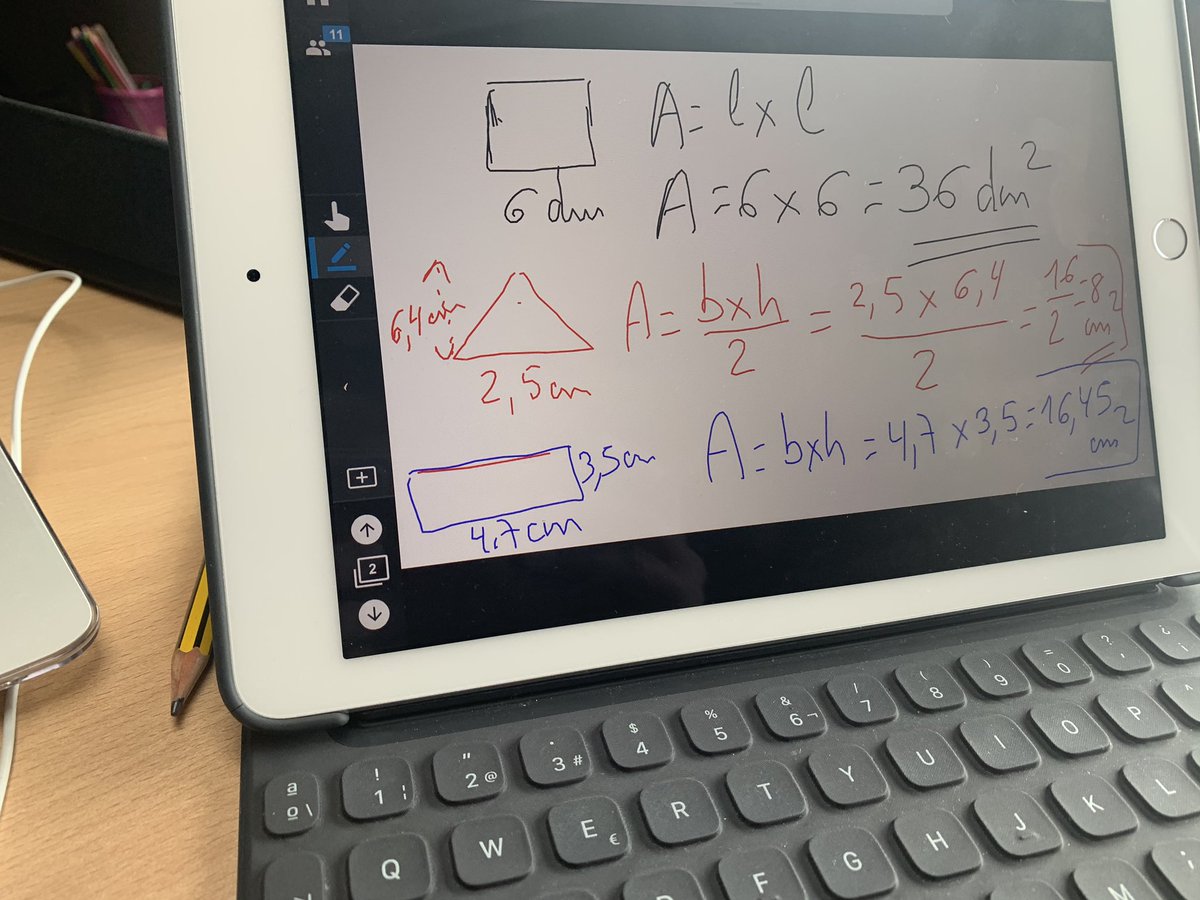 11
A = l x l
6 dm
A = 6 x 6 = 36 dm²
6,4 cm
A = bxh/2 = 2,5 x 6,4/2 = 16/2 = 8 cm²
2,5 cm
3,5 cm
A = bxh = 4,7 x 3,5 = 16,45 cm²
4,7 cm
2
ª º \
! 1 ¦
" 2 @
· 3 #
$ 4
% 5
& 6 ¬
/ 7
( 8
) 9
= 0
? '
¿ ¡
Q W E € R T Y U I O P ^
F G H J K L
M